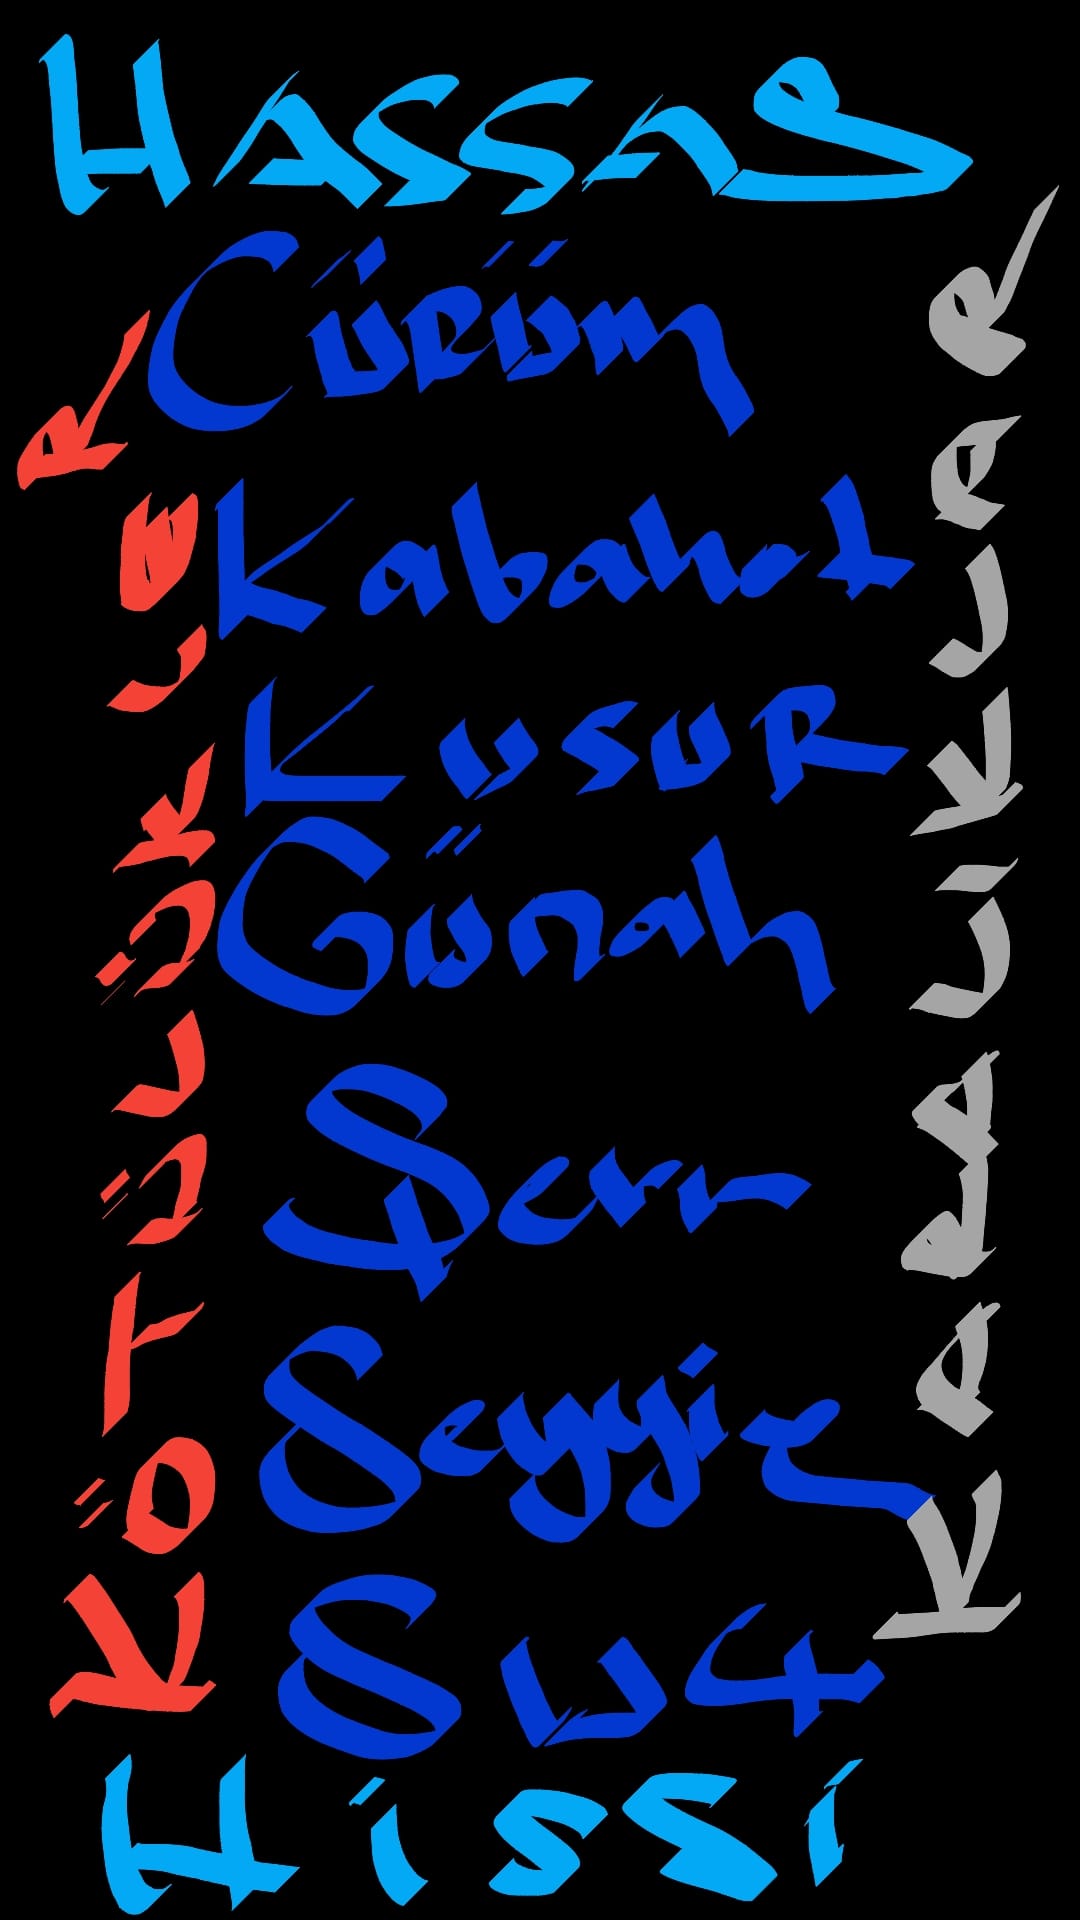 Hassas
Cürüm
Kabahat
Kusur
Günah
Şerr
Seyyie
Suç
Hissi
KÖTÜLÜKLER
KARALIKLAR